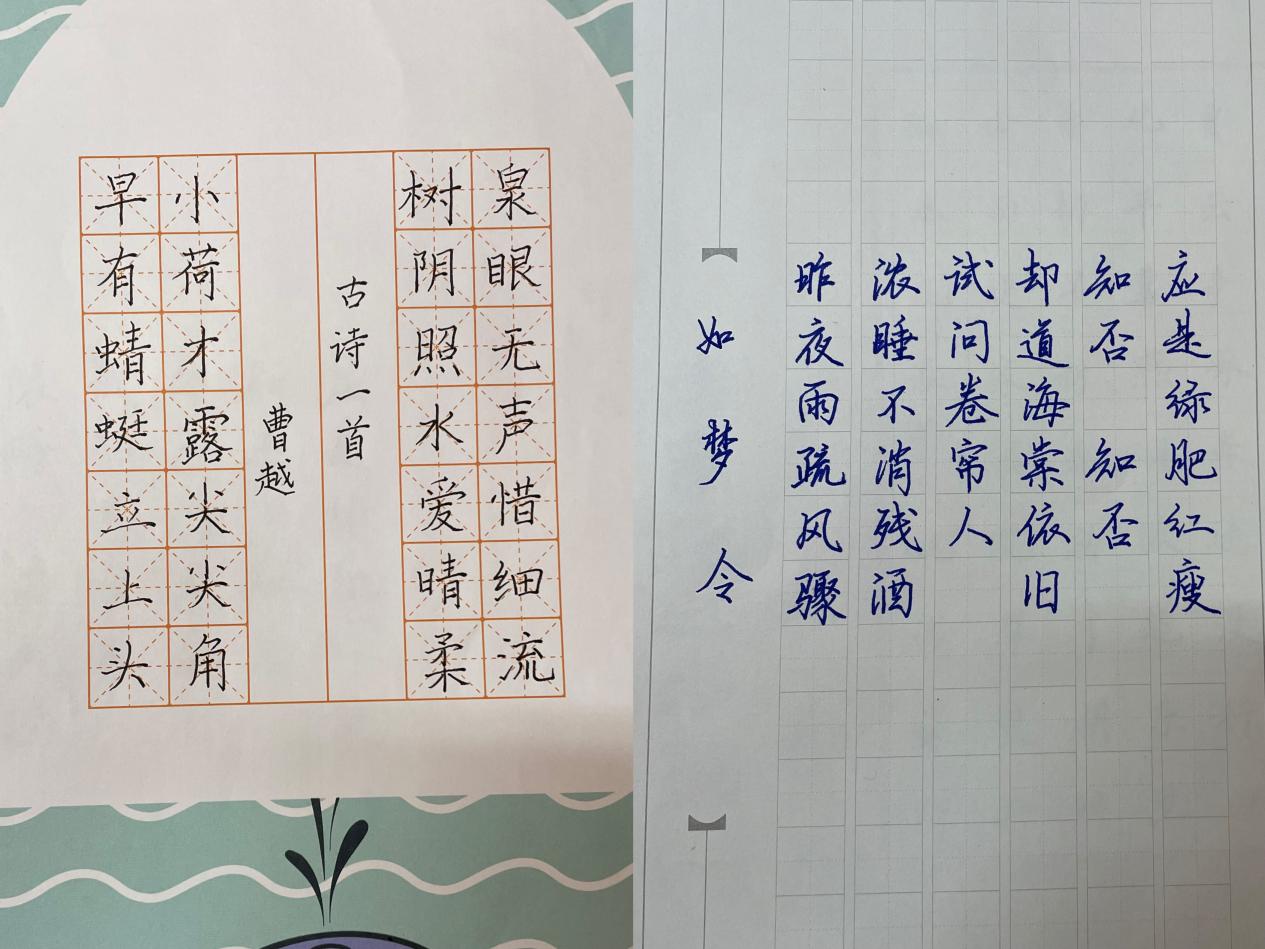 泉眼无声惜细流
树阴照水爱晴柔
古诗一首
曹越
小荷才露尖尖角
早有蜻蜓立上头
如梦令
昨夜雨疏风骤
浓睡不消残酒
试问卷帘人
却道海棠依旧
知否 知否
应是绿肥红瘦